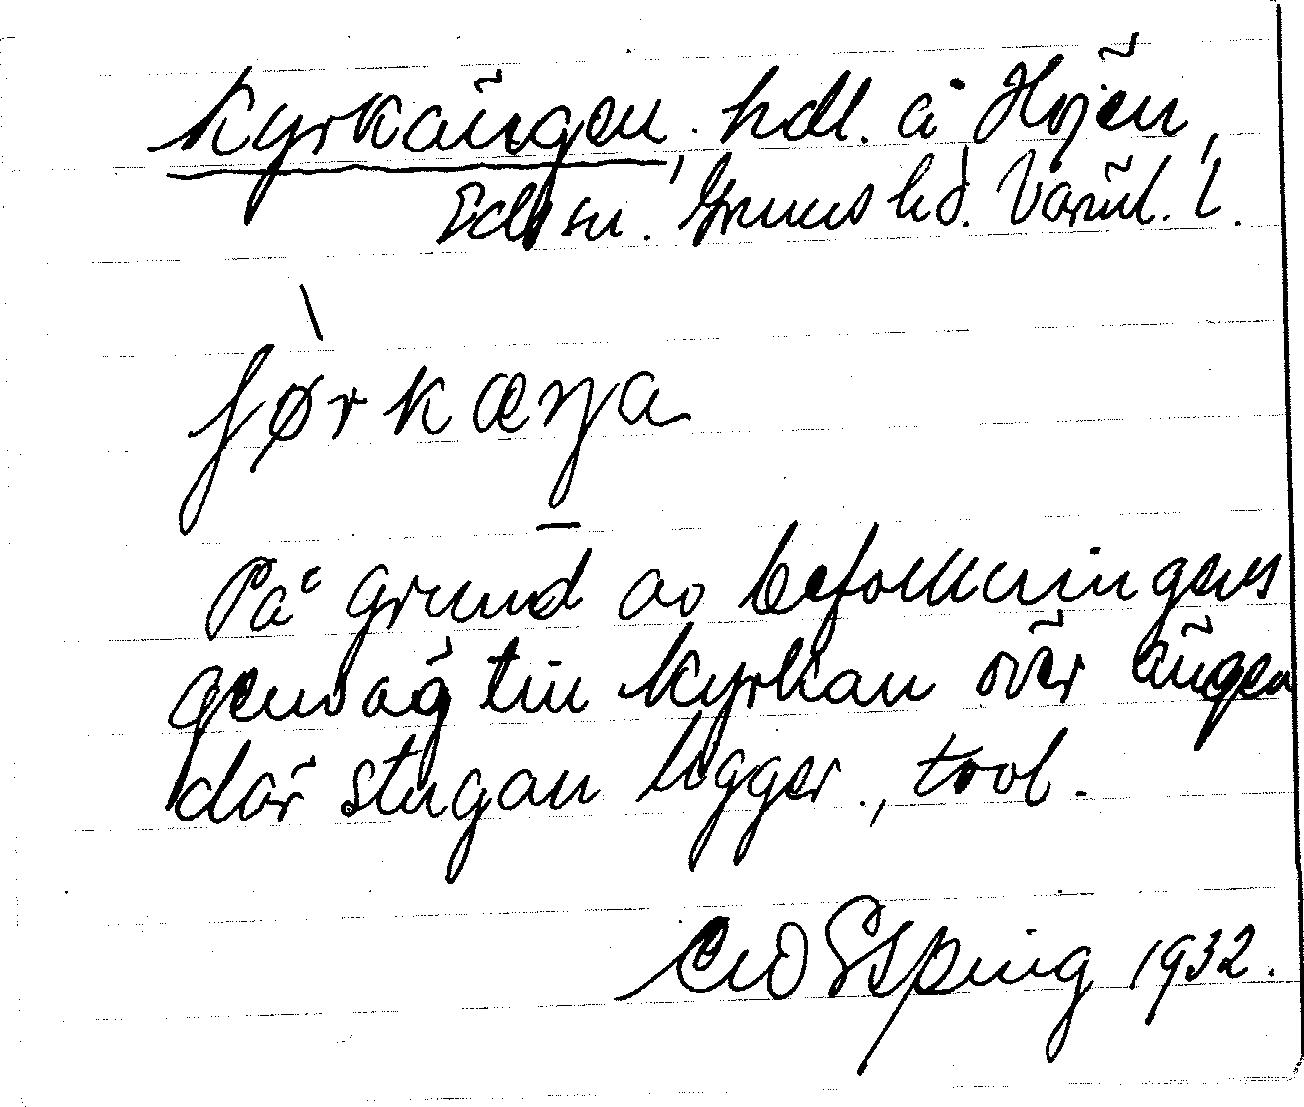 Kyrkängen, hdl. å Höjen,
Eds sn. Grums hd. Värml. l.
jørkæŋa
På grund av befolkningens
genväg till kyrkan över ängen
där stugan ligger, trol.
Esping 1932.